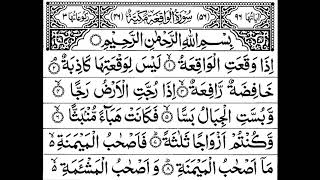 اٰيَاتُهَا ٩٦ (٥٦) سُوْرَةُ الْوَاقِعَةِ مَكِّيَّةٌ (٤٦) رُكُوْعَاتُهَا ٣
بِسْمِ اللّٰهِ الرَّحْمٰنِ الرَّحِيْمِ
اِذَا وَقَعَتِ الْوَاقِعَةُ ۙ‏ ١ لَيْسَ لِوَقْعَتِهَا كَاذِبَةٌ ۘ‏ ٢
خَافِضَةٌ رَّافِعَةٌ ۙ‏ ٣ اِذَا رُجَّتِ الْاَرْضُ رَجًّا ۙ‏ ٤
وَّبُسَّتِ الْجِبَالُ بَسًّا ۙ‏ ٥ فَكَانَتْ هَبَآءً مُّنْۢبَثًّا ۙ‏ ٦
وَّكُنْتُمْ اَزْوَاجًا ثَلٰثَةً ؕ‏ ٧ فَاَصْحٰبُ الْمَيْمَنَةِ ۙ
مَاۤ اَصْحٰبُ الْمَيْمَنَةِ ؕ‏ ٨ وَاَصْحٰبُ الْمَشْـَٔمَةِ ۙ